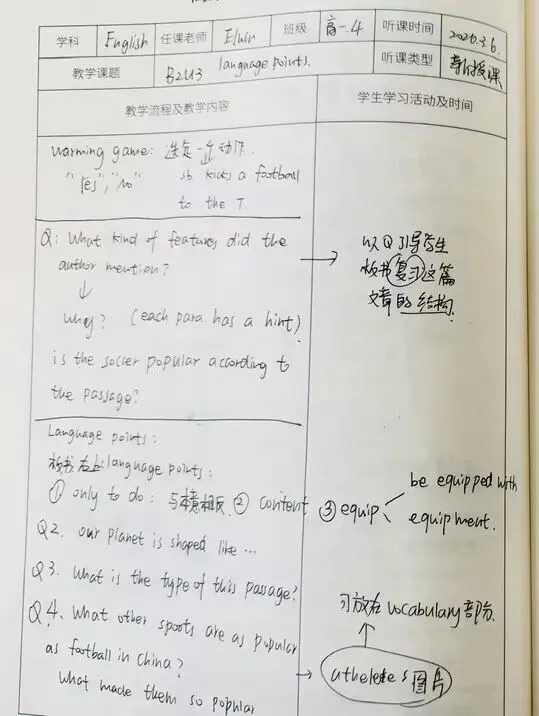 学科 English 任课老师 Elwin 班级 高一.4 听课时间 2020.3.6.
教学课题 B2U3 language points. 听课类型 新授课
教学流程及教学内容 学生学习活动及时间
warming game: 选定一个动作.
"Yes", "No" sb kicks a football
to the T.
Q: What kind of features did the
author mention? → 以Q引导学生
板书复习这篇
文章的结构.
↓
why? (each para. has a hint)
is the soccer popular according to
the passage?
Language points:
板书右上language points:
① only to do: 与本意相反 ② content ③ equip
be equipped with
equipment.
Q2. our planet is shaped like …
Q3. What is the type of this passage?
Q4. What other sports are as popular
as football in China?
What made them so popular
可放在vocabulary部分.
↑
→ atheletes图片